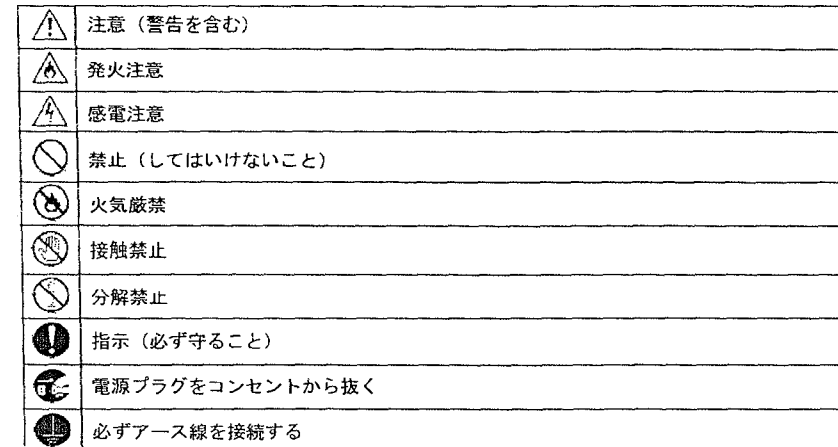 注意（警告を含む）
発火注意
感電注意
禁止（してはいけないこと）
火気厳禁
接触禁止
分解禁止
指示（必ず守ること）
電源プラグをコンセントから抜く
必ずアース線を接続する